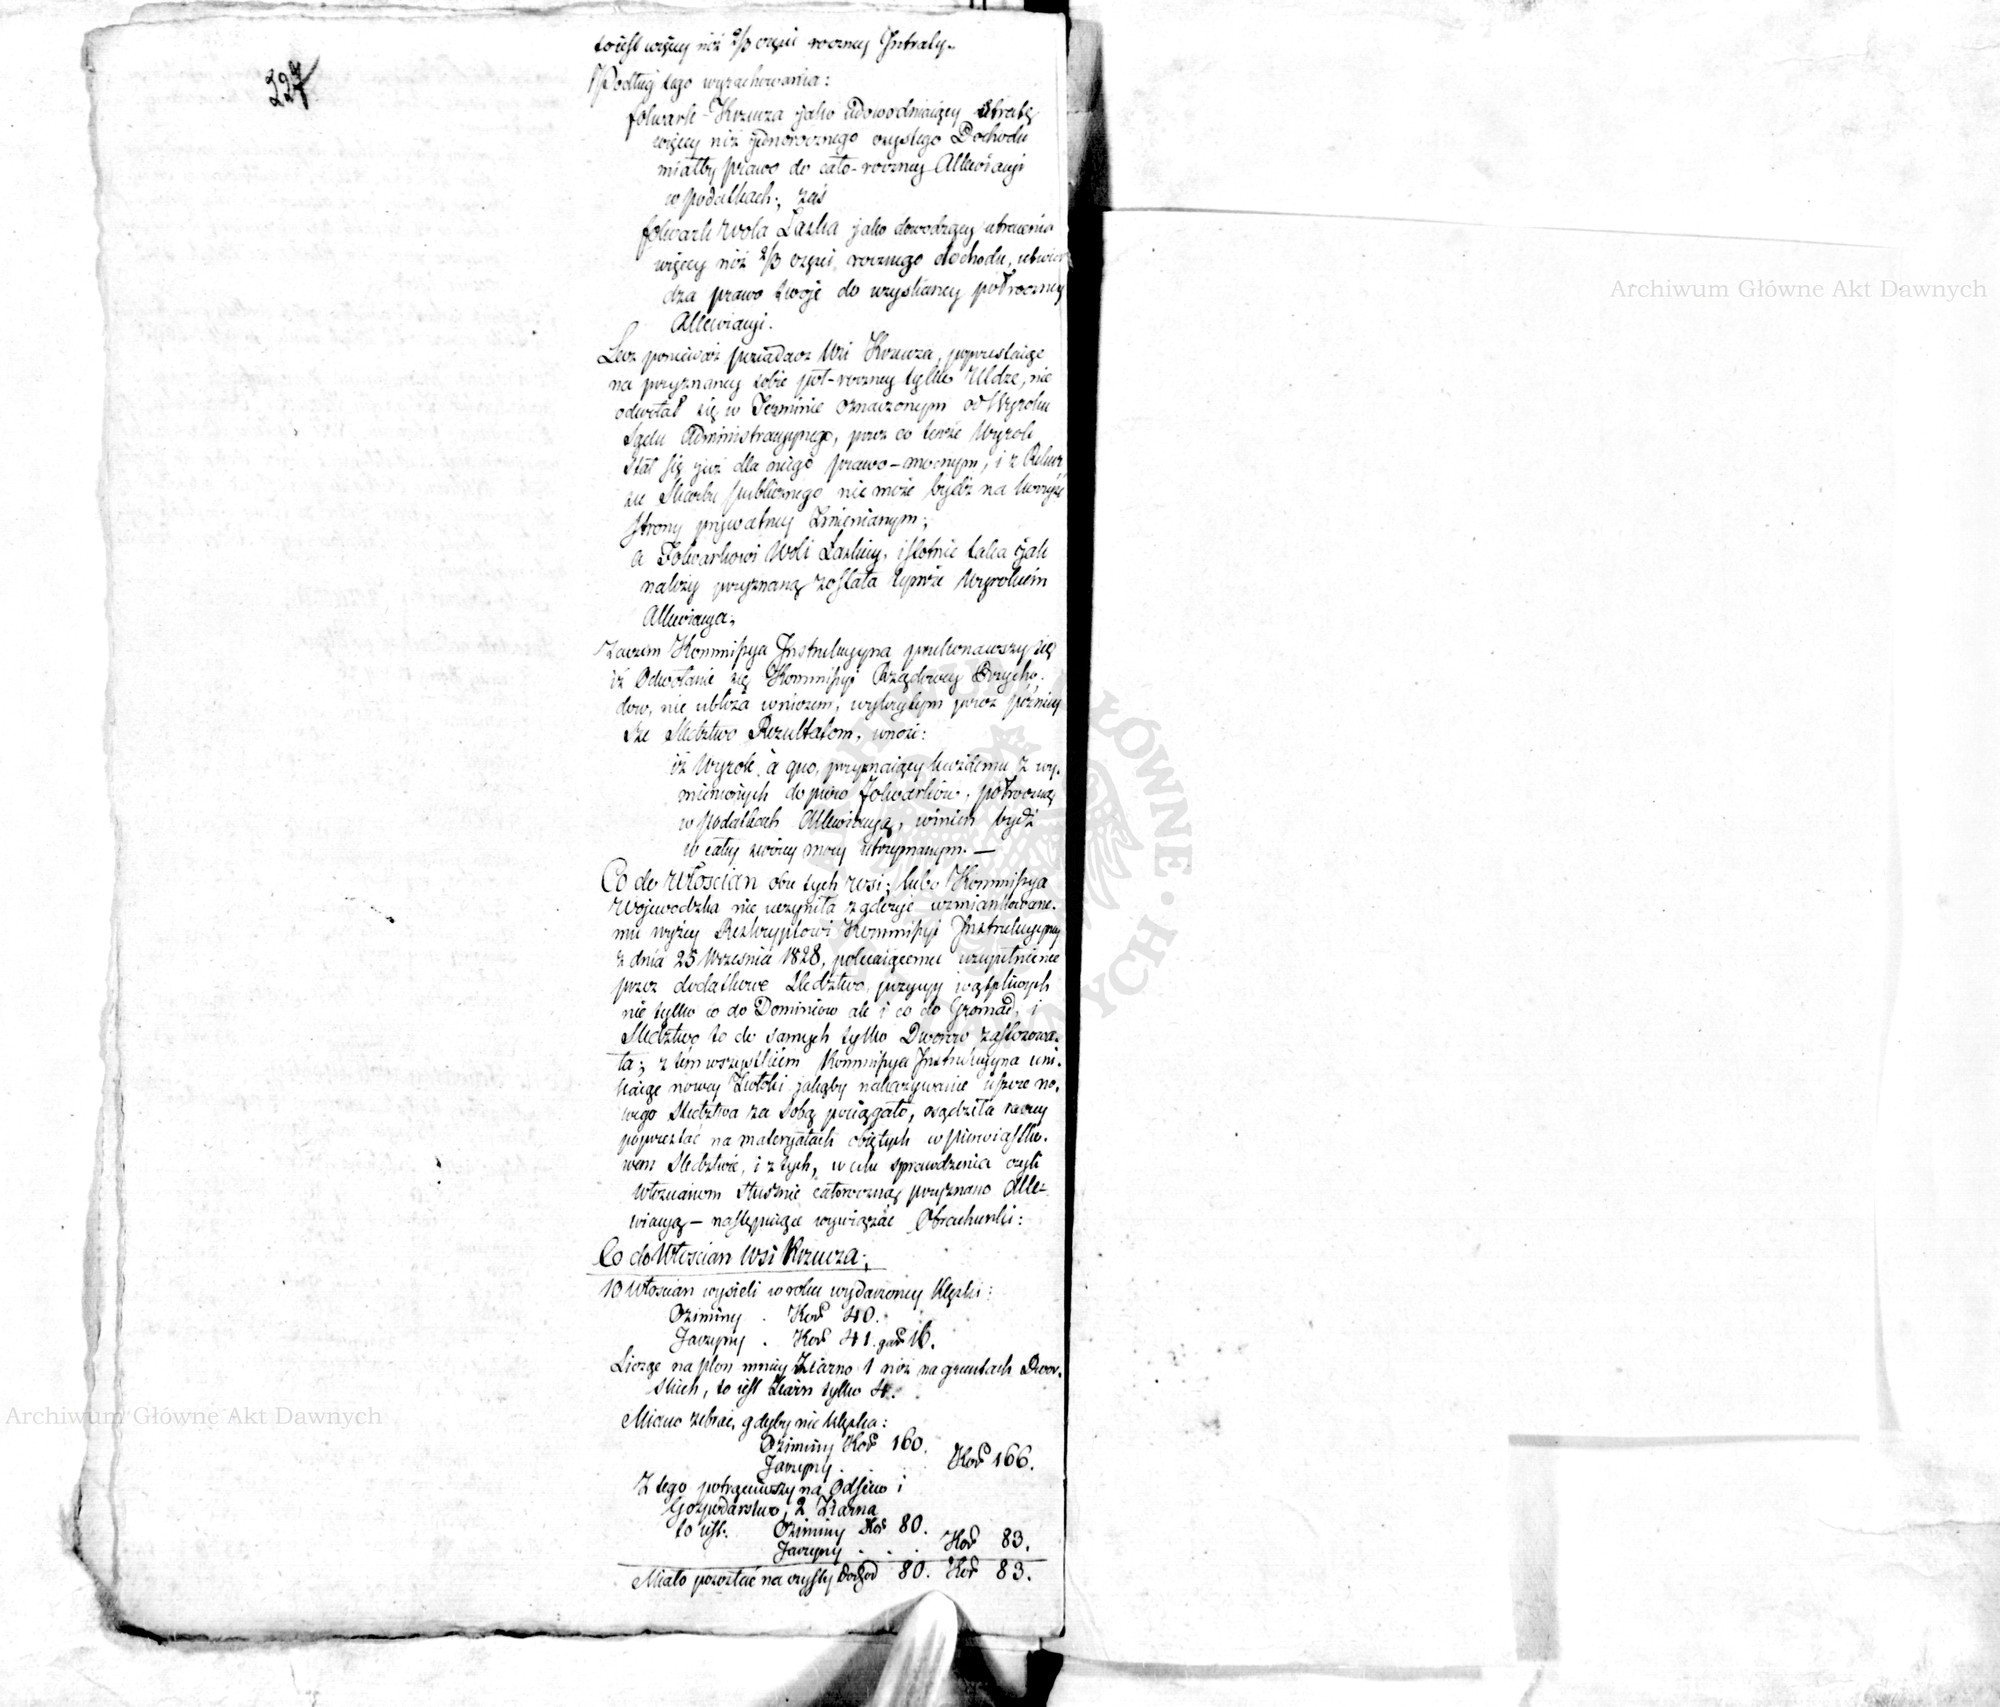 227
to iest więcey niż 2/3 części roczney Intraty.
Podług tego wyrachowania:
folwark Krzucza jako udowodniaiący stratę
więcey niż jednorocznego czystego Dochodu
miałby prawo do cało-roczney Allewiacyi
w podatkach; zaś
folwark Wola Łaska jako dowodzący utracenia
więcey niż 2/3 części rocznego dochodu, utwier
dza prawo swoje do uzyskaney półroczney
Allewiacyi.
Lecz ponieważ posiadacz Wsi Krzucza, poprzestaiąc
na przyznaney sobie pół-roczney tylko Uldze, nie
odwołał się w Terminie oznaczonym od Wyroku
Sądu Administracyinego, przez co tenże Wyrok
stał się już dla niego prawo-mocnym, i z Rekur
zu Skarbu publicznego nie może bydź na korzyść
strony prywatney zmienianym;
a Folwarkowi Woli Łaskiey, istotnie taka jak
należy przyznaną została tymże Wyrokiem
Allewiacya;
Zaczem Kommissya Instrukcyina przekonawszy się
iż Odwołanie się Kommissyi Rządowey Przycho.
dow, nie ubliża wniosem, wykrytym przez pózniey
sze Sledztwo Rezultatom, wnosi:
iż Wyrok à quo, przyznaiący każdemu z wy.
mienionych dopiero Folwarków, półroczną
w podatkach Allewiacyą, winien bydź
w całey swoiey mocy utrzymanym. —
Co do Włoscian obu tych wsi; lubo Kommissya
Wojewodzka nie uczyniła zadosyć wzmiankowane.
mu wyżey Reskryptowi Kommissyi Instrukcyiney
z dnia 25 Wrzesnia 1828, polecaiącemu uzupełnienie
przez dodatkowe Sledztwo, pozycyy wątpliwych
nie tylko co do Dominiow ale i co do Gromad, i
Sledztwo to do samych tylko Dworow zastosowa.
ła; z tém wszystkiém Kommissya Instrukcyina uni.
kaiąc nowey Zwłoki jakąby nakazywanie ieszcze no.
wego Sledztwa za sobą pociągało, osądziła raczey
poprzestać na materyałach obiętych w pierwiastko.
wem Sledztwie, i z tych, w celu sprawdzenia czyli
Włoscianom słusznie całoroczną przyznano Alle-
wiacyą — następuiące wywiązać Obrachunki:
Co do Włoscian Wsi Krzucza;
10 Włoscian wysieli w roku wydarzoney Klęski:
Oziminy . Kor 40.
Jarzyny . Kor 41. gar 16.
Licząc na plon mniey Ziarno 1 niż na gruntach Dwor.
skich, to iest Ziarn tylko 4.
Miano zebrać, gdyby nie klęska:
Oziminy Kor 160.
Jarzyny . . . Kor 166.
Z tego potrąciwszy na Odsiew i
Gospodarstwo, 2 Ziarna
to iest. Oziminy Kor 80.
Jarzyny . . . Kor 83.
Miało pozostać na czysty dochod 80. Kor 83.
Archiwum Główne Akt Dawnych
Archiwum Główne Akt Dawnych